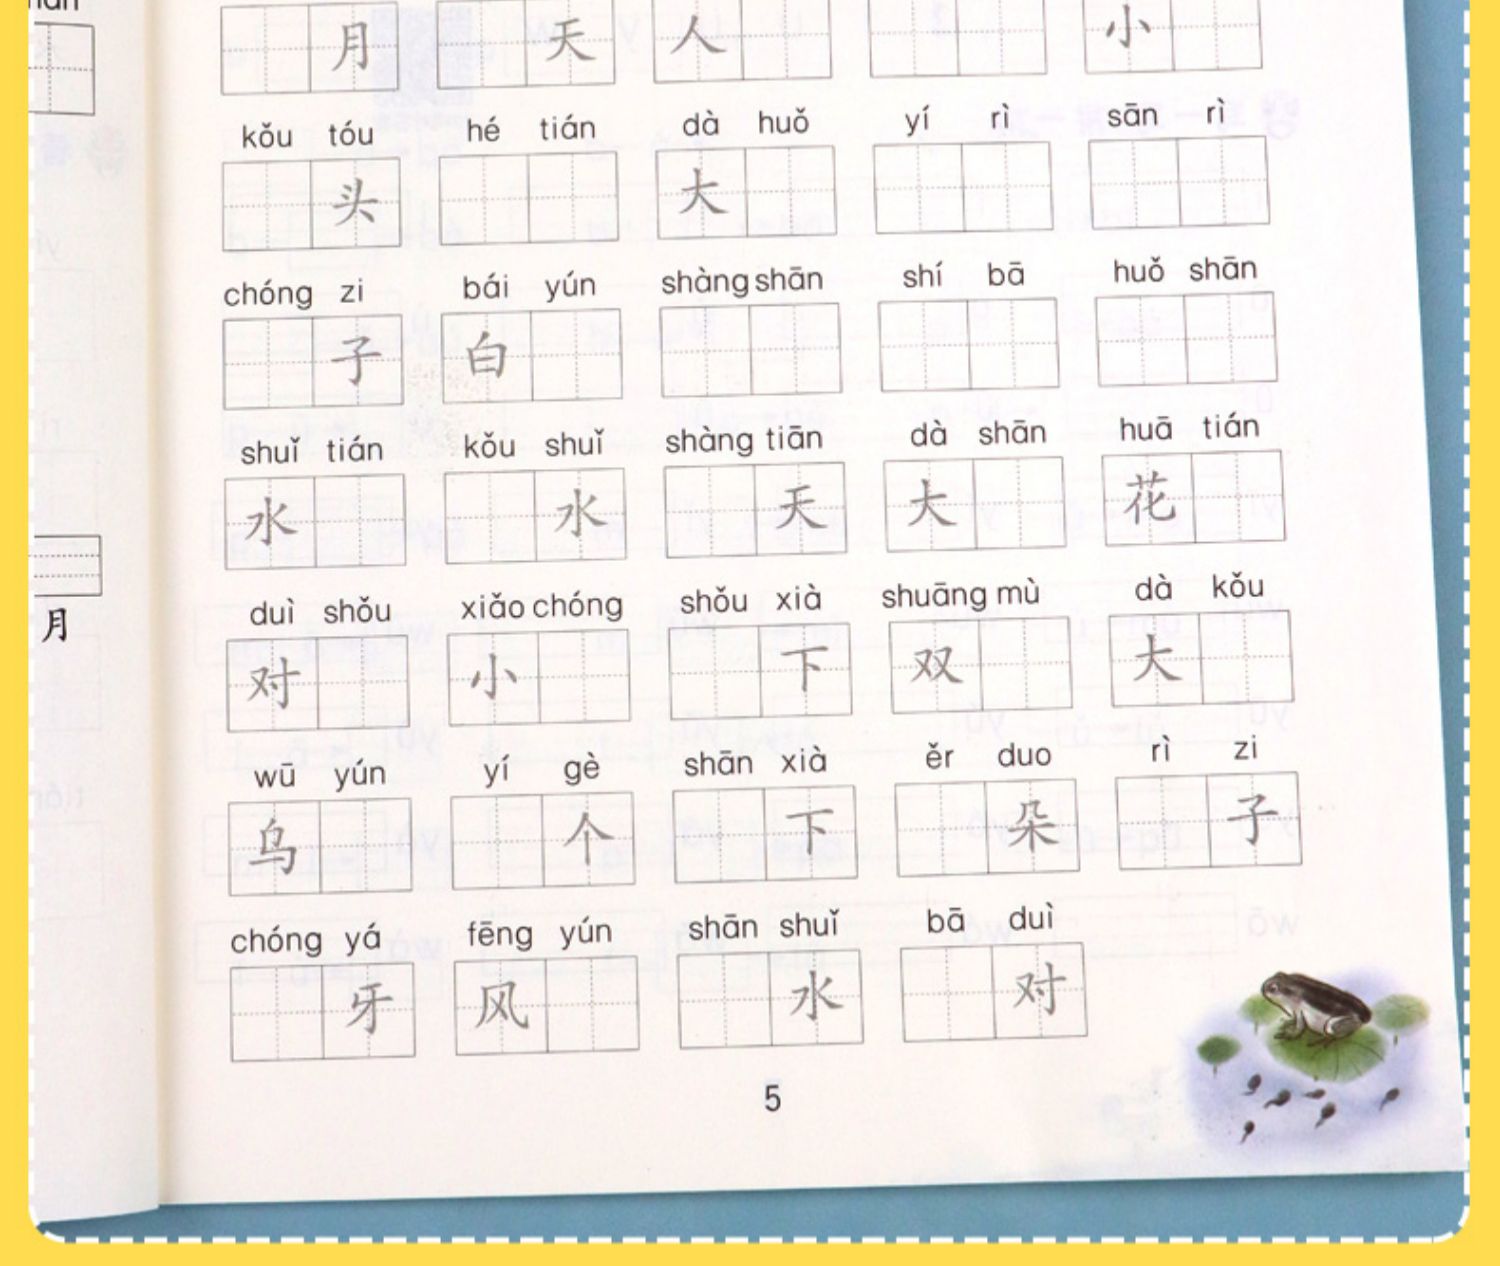 月 天 人 小
kǒu tóu hé tián dà huǒ yí rì sān rì
头 大
chóng zi bái yún shàng shān shí bā huǒ shān
子 白
shuǐ tián kǒu shuǐ shàng tiān dà shān huā tián
水 水 天 大 花
duì shǒu xiǎo chóng shǒu xià shuāng mù dà kǒu
对 小 下 双 大
月
wū yún yí gè shān xià ěr duo rì zi
乌 个 下 朵 子
chóng yá fēng yún shān shuǐ bā duì
牙 风 水 对
5